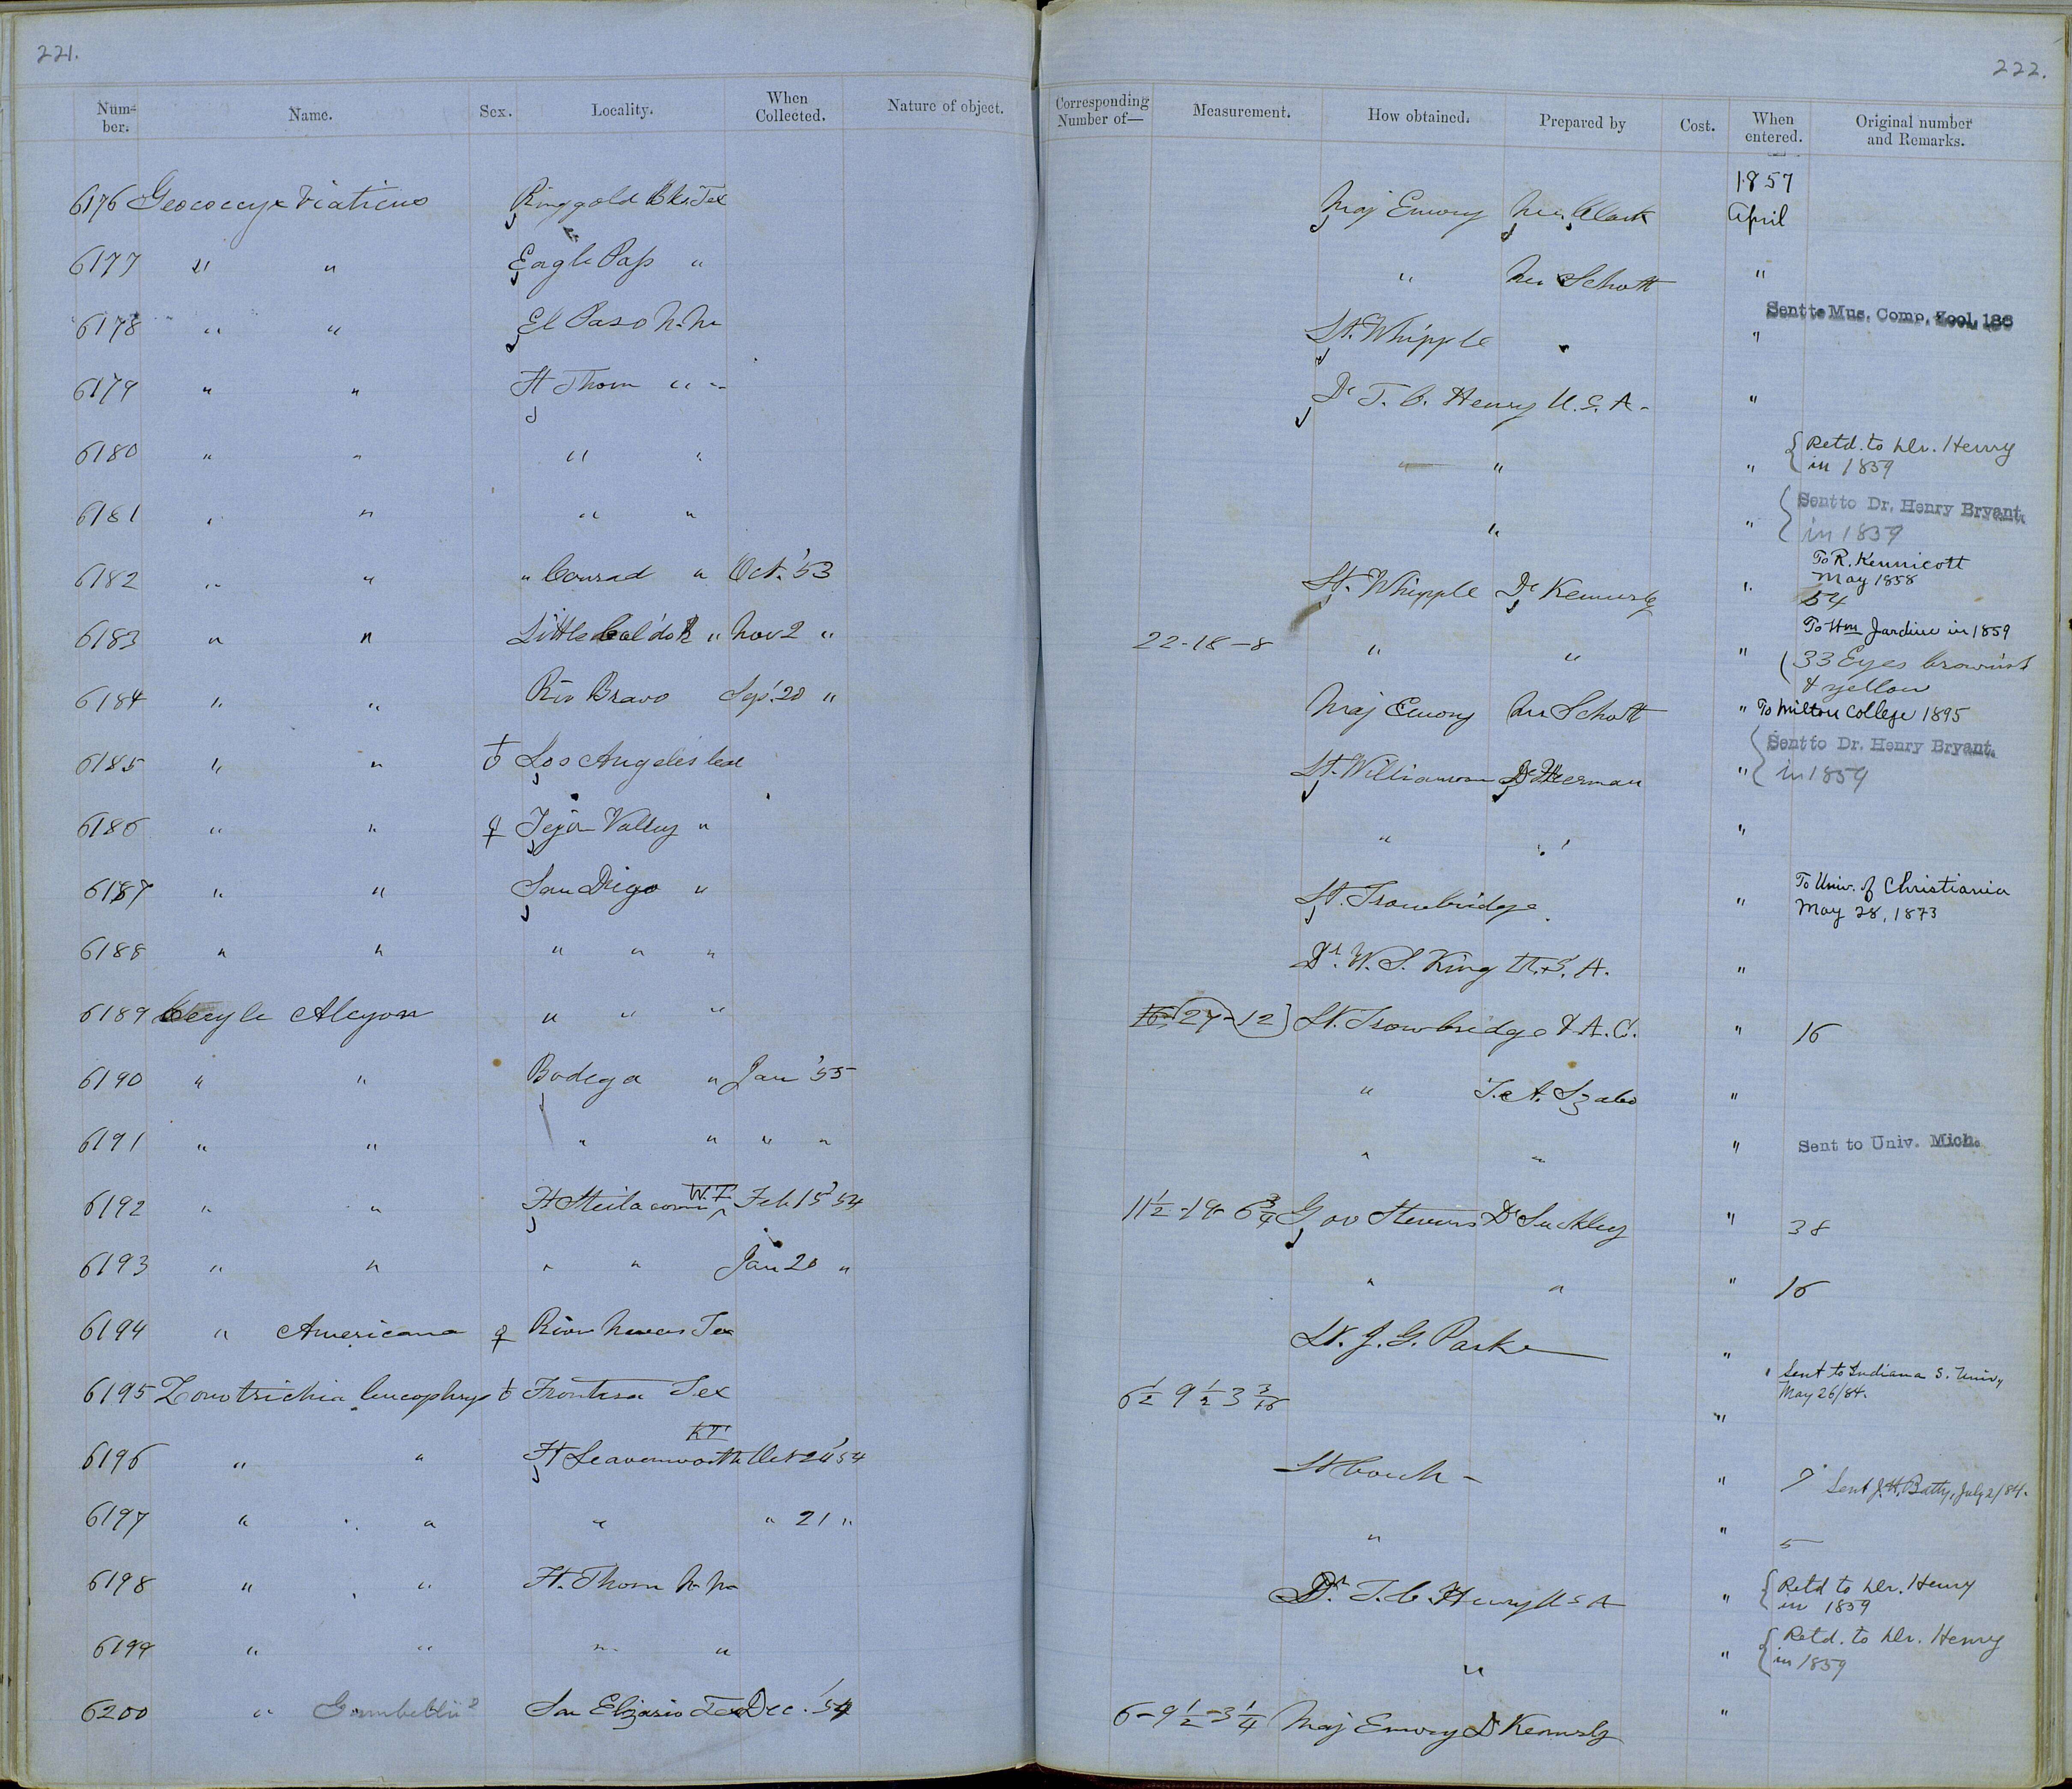 221.
222.
Num- ber. Name. Sex. Locality. When Collected. Nature of object. Corresponding Number of— Measurement. How obtained. Prepared by Cost. When entered. Original number and Remarks.
1857
6176 Geococcyx Viaticus Ringgold Bks. Tex Maj Emory Mr. Clark April
6177 " " Eagle Pass " " Mr Schott "
6178 " " El Paso N. M Lt. Whipple " Sent to Mus. Comp. Zool. 186
6179 " " Ft Thorn " " Dr T. C. Henry U. S. A. "
6180 " " " " " " " { Retd. to Dr. Henry
in 1859
6181 " " " " " " { Sent to Dr. Henry Bryant
in 1859
6182 " " " Conrad " Oct. '53 Lt. Whipple Dr Kennerly " To R. Kennicott
May 1858
54
6183 " " Little Col'do R " Nov 2 " 22-18-8 " " " To Wm Jardine in 1859
( 33 Eyes brownish
& yellow
6184 " " Rio Bravo Sep. 20 " Maj Emory Mr Schott " To Milton College 1895
6185 " " ♂ Los Angeles Cal Lt. Williamson Dr Heerman " { Sent to Dr. Henry Bryant.
in 1859
6186 " " ♀ Tejon Valley " " " "
6187 " " San Diego " Lt. Trowbridge " To Univ. of Christiania
May 28, 1873
6188 " " " " " Dr. W. S. King U. S. A. "
6189 Ceryle Alcyon " " " (24-12) Lt. Trowbridge & A. C. " 16
6190 " " Bodega " Jan '55 " T. A. Szabo "
6191 " " " " " " " " " Sent to Univ. Mich.
6192 " " Ft Steilacoom W. T. Feb 15 '54 11 1/2 -19- 6 3/4 Gov Stevens Dr Suckley " 38
6193 " " " " Jan 20 " " " " 16
6194 " Americana ♀ River Nueces Tex Lt. J. G. Parke "
6195 Zonotrichia leucophrys ♂ Frontera Tex 6 1/2 9 1/2 3 3/16 " Sent to Indiana S. Univ,
May 26/84.
6196 " " Ft Leavenworth K T Oct 21 '54 Lt Couch - " 7 Sent J. H. Batty, July 2/84.
6197 " " " " " 21 " " " 5
6198 " " Ft. Thorn N. M Dr. T. C. Henry U S A " { Retd to Dr. Henry
in 1859
6199 " " " " " " { Retd. to Dr. Henry
in 1859
6200 " Gambellii? San Elizario Tex Dec. '54 6-9 1/2-3 1/4 Maj Emory Dr Kennerly "